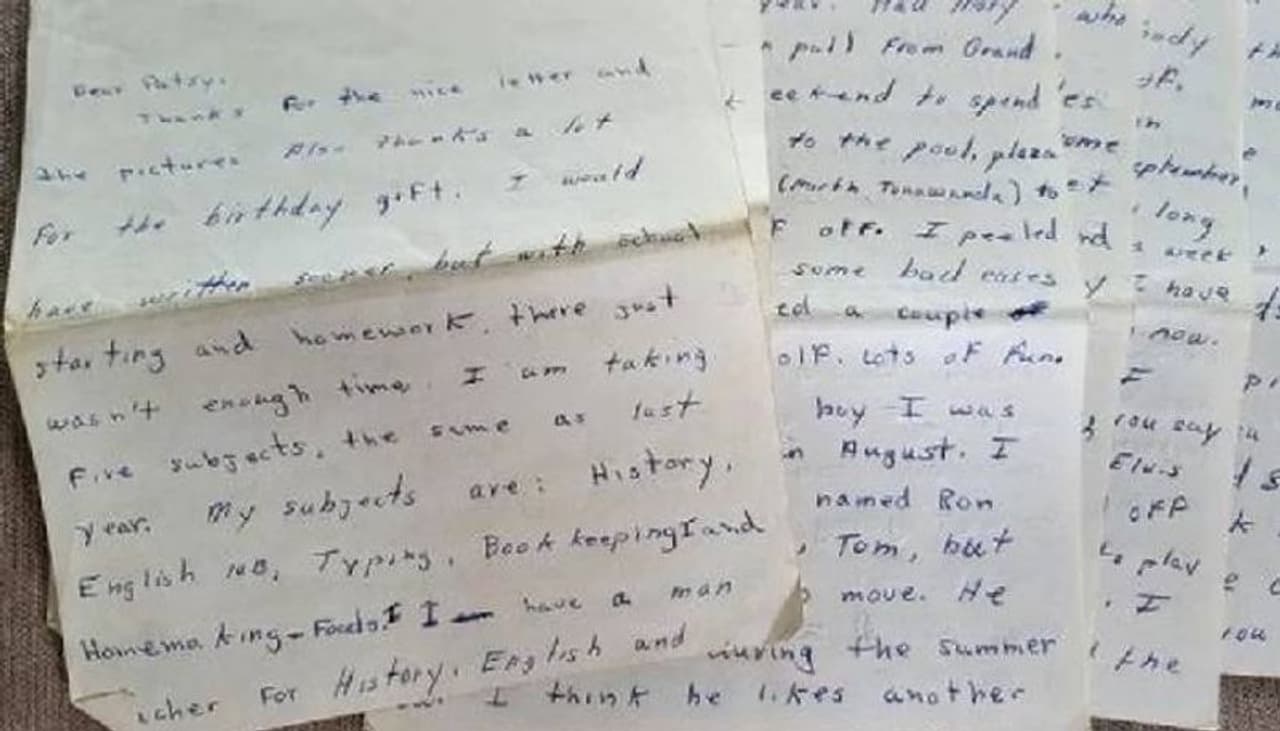 Dear Patsy,
Thanks for the nice letter and
the pictures Also Thanks a lot
For the birthday gift. I would
have written sooner, but with school
starting and homework, there just
wasn't enough time. I am taking
Five subjects, the same as last
year. My subjects are: History,
English 10B, Typing, Book keeping I and
Homemaking-Foods. I I have a man
acher For History, English and
year. Had Mary
pull From Grand
eekend to spend
to the pool, plaza
(North. Tonawanda) to
F off. I peeled
some bad cases
ed a couple of
olf. Lots of Fun.
boy I was
in August. I
named Ron
, Tom, but
move. He
during the summer
I think he likes another
who
es
ome
et
nd
y
ody
in
eptember,
long
week
I have
now.
I
You say
Elvis
off
to play
. I
the
th
mo
e
pr
k
e
you